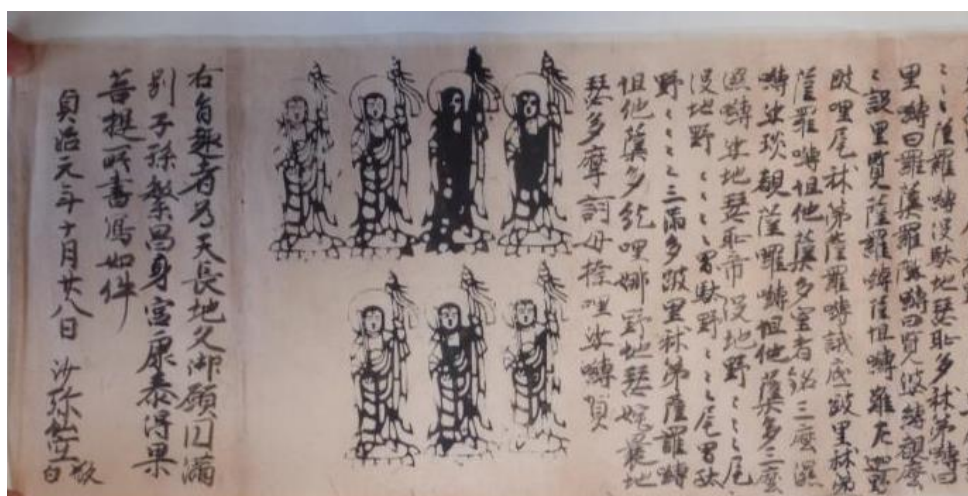 ミミ薩羅嚩没駄地瑟恥多秫弟嚩曰
里嚩曰羅蘖羅陛嚩曰覽婆嚩覩麼
ミ設里覽薩羅嚩薩怛嚩難左迦野
跛哩尾秫弟薩羅嚩誐底跛里秫弟
薩羅嚩怛他蘖多室者銘三麼濕
嚩娑琰覩薩羅嚩怛他蘖多三麼
濕嚩娑地瑟恥帝没地野ミミ尾
没地野ミミミ冒駄野ミミ尾冒駄
野ミミミ三満多跛里秫弟薩羅嚩
怛他蘖多紇哩娜野地瑟姹曩地
瑟多摩訶母捺哩娑嚩賀
右旨趣者為天長地久御願円満
別子孫繁昌身宮康泰得果
菩提所書寫如件
貞治元年十月廿八日 沙弥 敬白